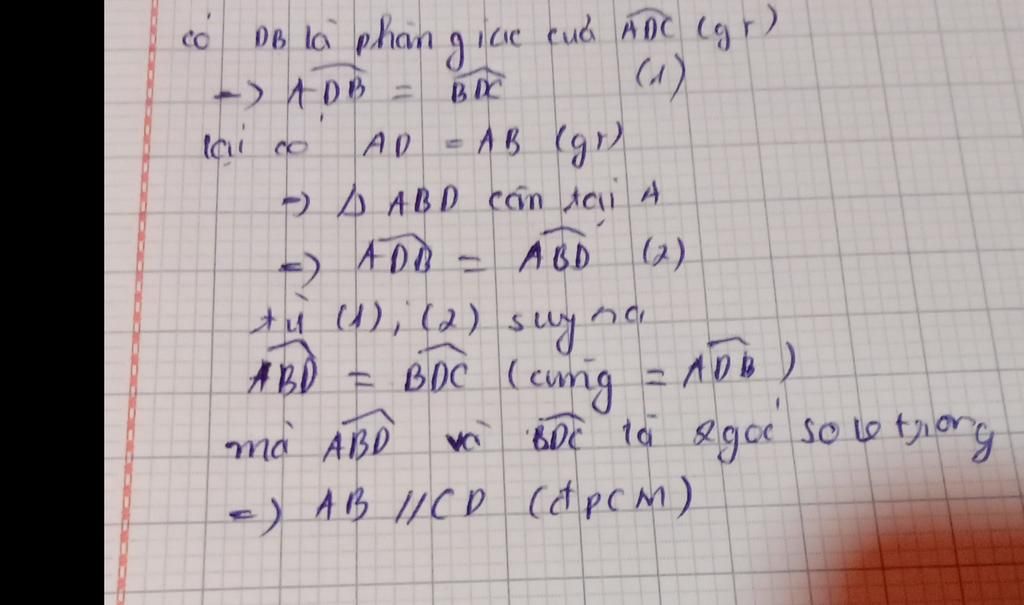 có DB là phân giác của ADC (gt)
=> ADB = BDC (1)
lại có AD = AB (gt)
=> Δ ABD cân tại A
=> ADB = ABD (2)
từ (1), (2) suy ra
ABD = BDC (cùng = ADB)
mà ABD và BDC là 2 góc so le trong
=> AB // CD (đpcm)